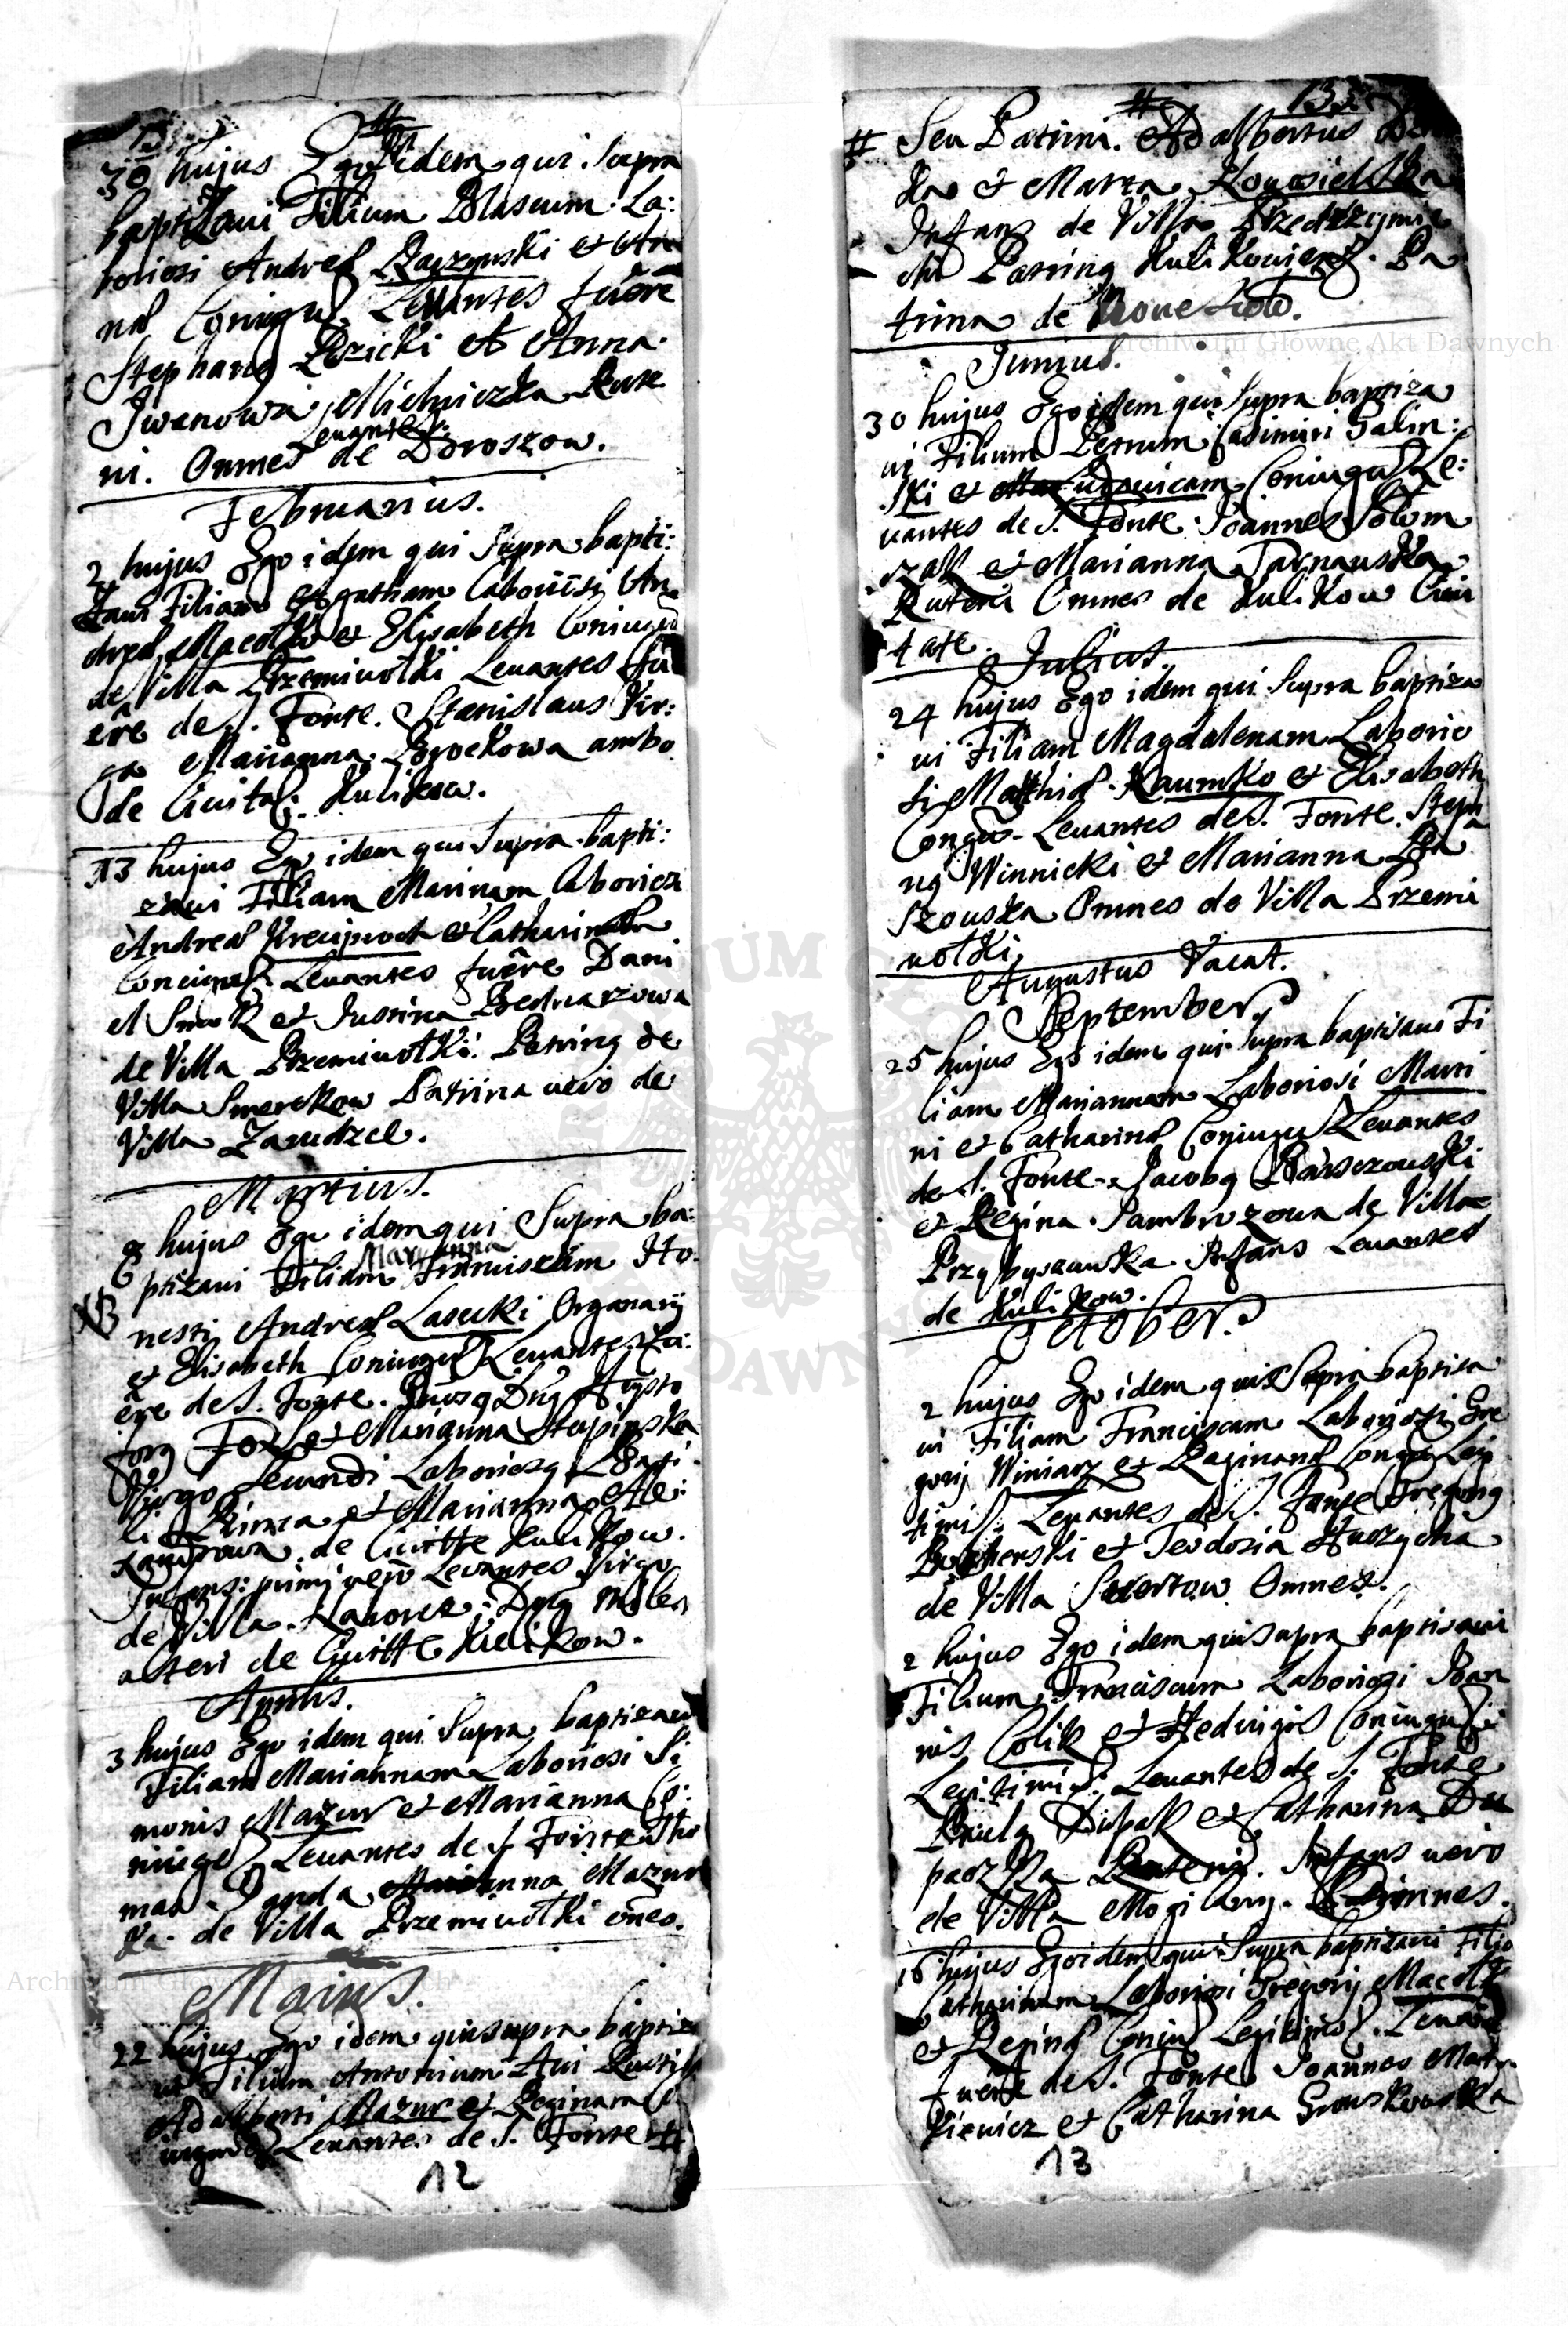 30 hujus Ego idem qui supra
baptizaui Filium Blasium La:
boriosi Andreæ Raczynski et An
næ Coniugū. Leuantes fuêre
Stephanus Bzicki et Anna
Iwanowa, Mielniczka Rute
ni. Omnes Leuantes de Doroszow.
Februarius.
2 hujus Ego idem qui supra bapti:
zaui Filiam Agatham Laboriosi An
dreæ Macołko et Elisabeth Coniugū
de Villa Przemiwołki Leuantes fu
ere de S. Fonte. Stanislaus Vir:
ga Marianna Brockowa ambo
de Ciuita: Kulikow.
13 hujus Ego idem qui supra bapti:
zaui Filiam Marinam Laboriosi
Andreæ Kreciproch et Catharinæ
Coniugū Leuantes fuêre Dani
el Smok et Justina Bednarzowa
de Villa Przemiwołki. Patrinus de
Villa Smerekow Patrina uero de
Villa Zarudzel.
Martius.
8 hujus Ego idem qui Supra ba:
ptizaui Filiam Maryanna Franciscam Ho:
nesti Andreæ Lasecki Organarij
et Elisabeth Coniugū Leuantes fu:
ere de S. Fonte. Dnus
Fox et Marianna Stupinska
Virgo secundi Laboriosus Basi
li et Marianna Ale:
xandrowa de Ciuitte Kulikow.
Infans: primi uero Leuantes Virgo
de Villa. Dnus Miles
alteri de Ciuitte Kulikow.
Aprilis.
3 hujus Ego idem qui Supra baptizaui
Filiam Mariannam Laboriosi Si
monis Mazur et Marianna Co:
niugū Leuantes de S. Fonte Tho
mas Ganda Marianna Mazur
ka de Villa Przemiwołki omēs.
Maius.
22 hujus Ego idem qui supra baptiza
ui Filium Antonium
Adalberti Mazur et Reginam Co
iugum Leuantes de S. Fonte #
12
# Seu Patrini. Adalbertus
ka et Marta Kowosielska
Infans de Villa Przedrzymie
chi Patrinus Kulikowiensis. Pa
trina de Noue Sioło.
Junius.
30 hujus Ego idem qui Supra baptiza
ui Filium Petrum Casimiri Galin:
ski et Ludouicam Coniugū Le:
uantes de S. Fonte Joannes Sołom
czak et Marianna Tarnauska
Ruteni Omnes de Kulikow Ciui
tate.
Julius.
24 hujus Ego idem qui Supra baptiza
ui Filiam Magdalenam Laborio
si Mathiæ Naumko et Elisabeth
Congū. Leuantes de S. Fonte. Stepha
nus Winnicki et Marianna Ba
szouska Omnes de Villa Przemi
wołki
Augustus Vacat.
September.
25 hujus Ego idem qui Supra baptisaui Fi
liam Mariannam Laboriosi Mari
ni et Catharinæ Coniugū Leuantes
de S. Fonte Jacobus Barszczouski
et Regina Samborzowa de Villa
Przybyszowka Infans Leuantes
de Kulikow.
October.
2 hujus Ego idem qui Supra baptisa
ui Filiam Franciscam Laboriosi Gre
gorij Winiarz et Raginæ Congū Legi
timis. Leuantes de S. Fonte Gregorius
et Teodozia Huczycha
de Villa Omnes.
2 hujus Ego idem qui supra baptisaui
Filium Franciscum Laboriosi Joan
nis Colik et Hedwigis Coniugū
Legitimis: Leuantes de S. Fonte
Paulus Dupak et Catharina Du
paczka Rutenis. Infans uero
de Villa Mogilany. Omnes.
16 hujus Ego idem qui Supra baptizaui Filia
Catharinam Laboriosi Gregorij Macołk
et Reginæ Coniug Legitimis. Leuan
fuere de S. Fonte Joannes Mar
kiewicz et Catharina Gronskowska
13
Archiwum Główne Akt Dawnych
Archiwum Główne Akt Dawnych